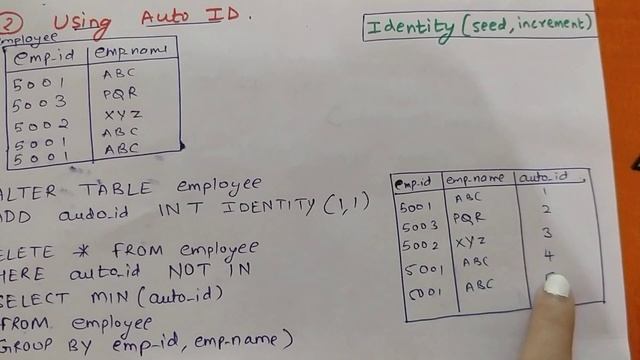 ② Using Auto ID.
Identity (seed, increment)
employee
emp_id emp_name
5001 ABC
5003 PQR
5002 XYZ
5001 ABC
5001 ABC
ALTER TABLE employee
ADD audo_id INT IDENTITY (1,1)
ELETE * FROM employee
HERE auto_id NOT IN
SELECT MIN (auto_id)
FROM employee
GROUP BY emp_id, emp_name)
emp_id emp_name auto_id
5001 ABC 1
5003 PQR 2
5002 XYZ 3
5001 ABC 4
5001 ABC